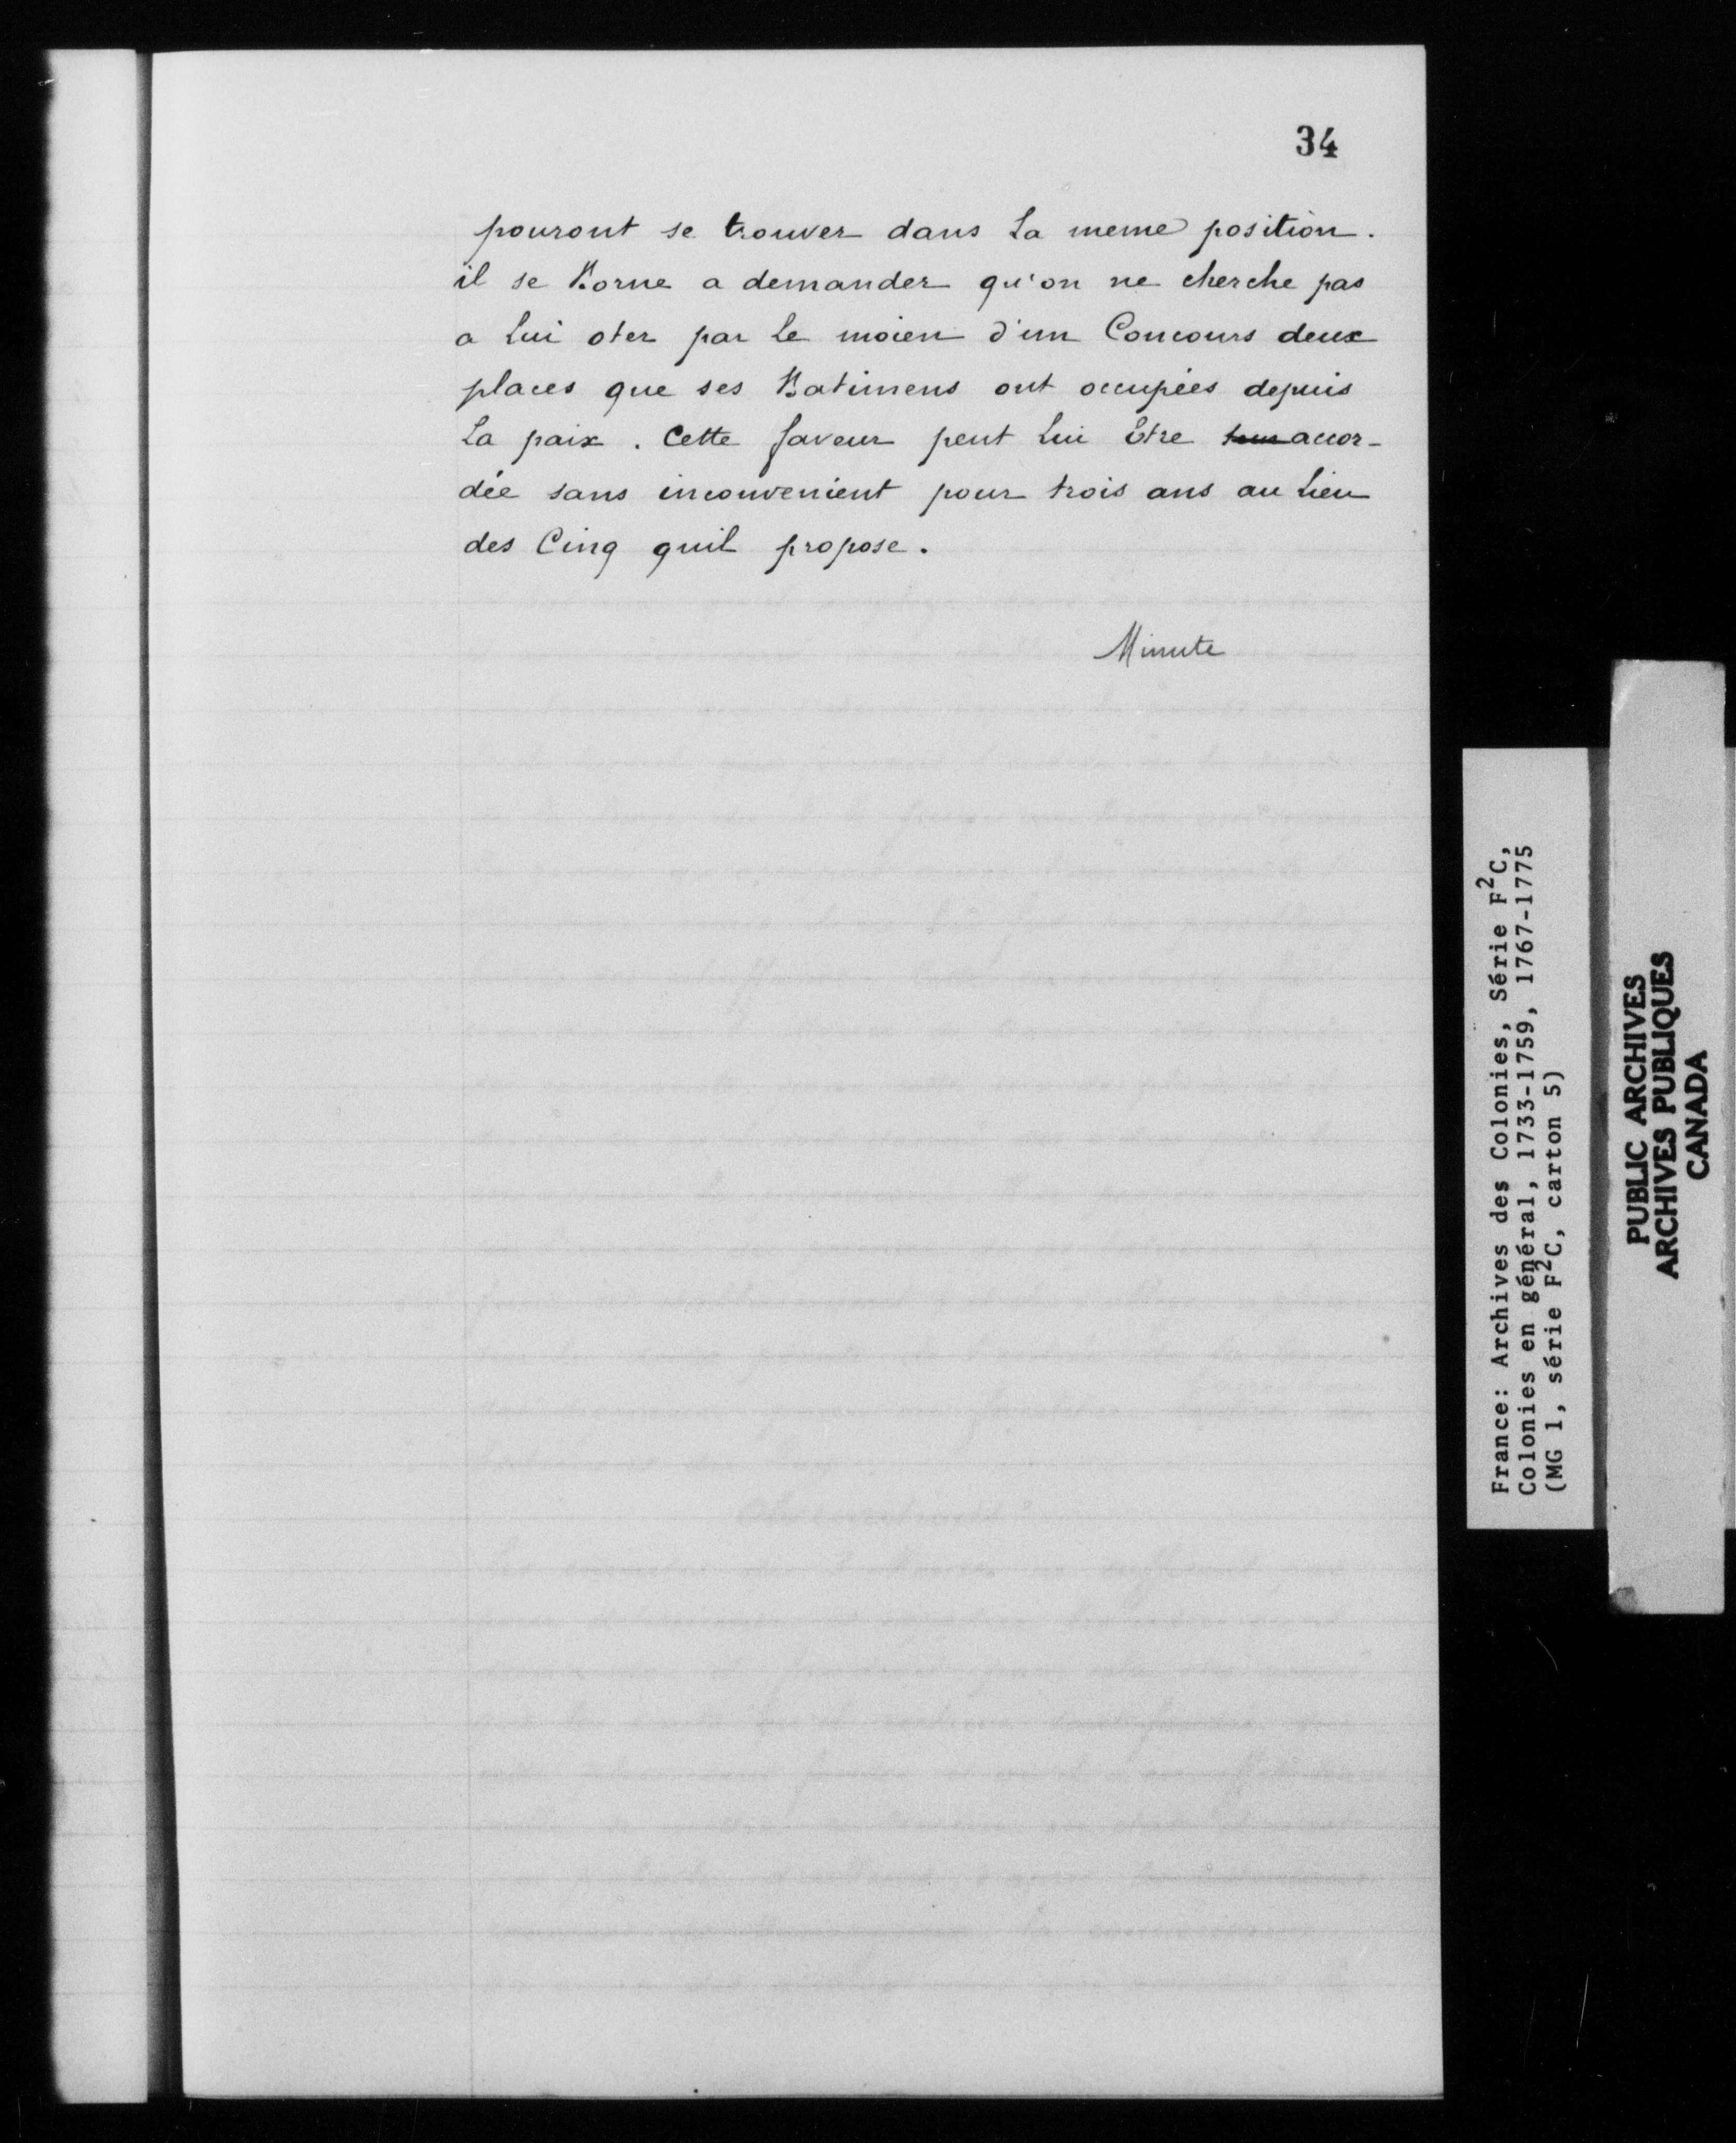 34
pouront se trouver dans la meme position.
il se Borne a demander qu'on ne cherche pas
a lui oter par le moien d'un Concours deux
places que ses Batimens ont occupées depuis
la paix. Cette faveur peut lui Etre accor-
dée sans inconvenient pour trois ans au lieu
des Cinq quil propose.
Minute
France: Archives des Colonies, Série F2C,
Colonies en général, 1733-1759, 1767-1775
(MG 1, série F2C, carton 5)
PUBLIC ARCHIVES
ARCHIVES PUBLIQUES
CANADA